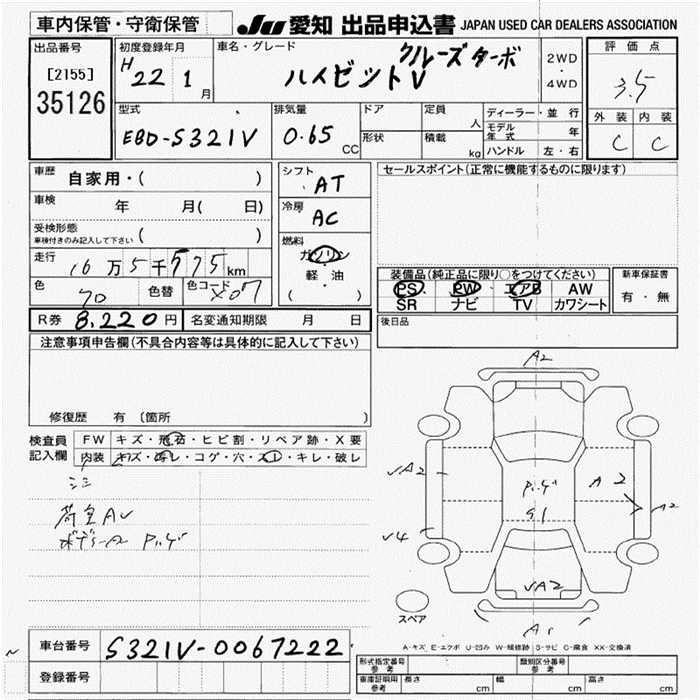 車内保管・守衛保管
JU 愛知 出品申込書 JAPAN USED CAR DEALERS ASSOCIATION
出品番号
[2155]
35126
初度登録年月
H 22 1月
車名・グレード
クルーズターボ
ハイゼットV
2WD
・
4WD
評価点
3.5
外装 内装
C C
型式
EBD-S321V
排気量
0.65 CC
ドア
形状
定員 人
積載 kg
ディーラー・並行
モデル年式 年
ハンドル 左・右
車歴 自家用・( )
車検 年 月( 日)
受検形態
車検付きのみ記入して下さい ( )
走行 16万5千775km
色 色替 色コード X07
シフト AT
冷房 AC
燃料
ガソリン
軽・油
( )
セールスポイント(正常に機能するものに限ります)
装備品(純正品に限り○をつけてください)
PS PW エアB AW
SR ナビ TV カワシート
新車保証書
有・無
R券 8,220円 名変通知期限 月 日
後日品
注意事項申告欄(不具合内容等は具体的に記入して下さい)
修復歴 有 (箇所 )
検査員記入欄
FW キズ・飛石・ヒビ割・リペア跡・X要
内装 キズ・汚レ・コゲ・穴・スレ・キレ・破レ
荷室AU
A2
A2
A2
スペア
A-キズ E-エクボ U-凹み W-補修跡 S-サビ C-腐食 XX-交換済
車台番号 S321V-0067222
登録番号
型式指定番号 参考
類別区分番号 参考
車庫証明用 参考 長さ cm 幅 cm 高さ cm